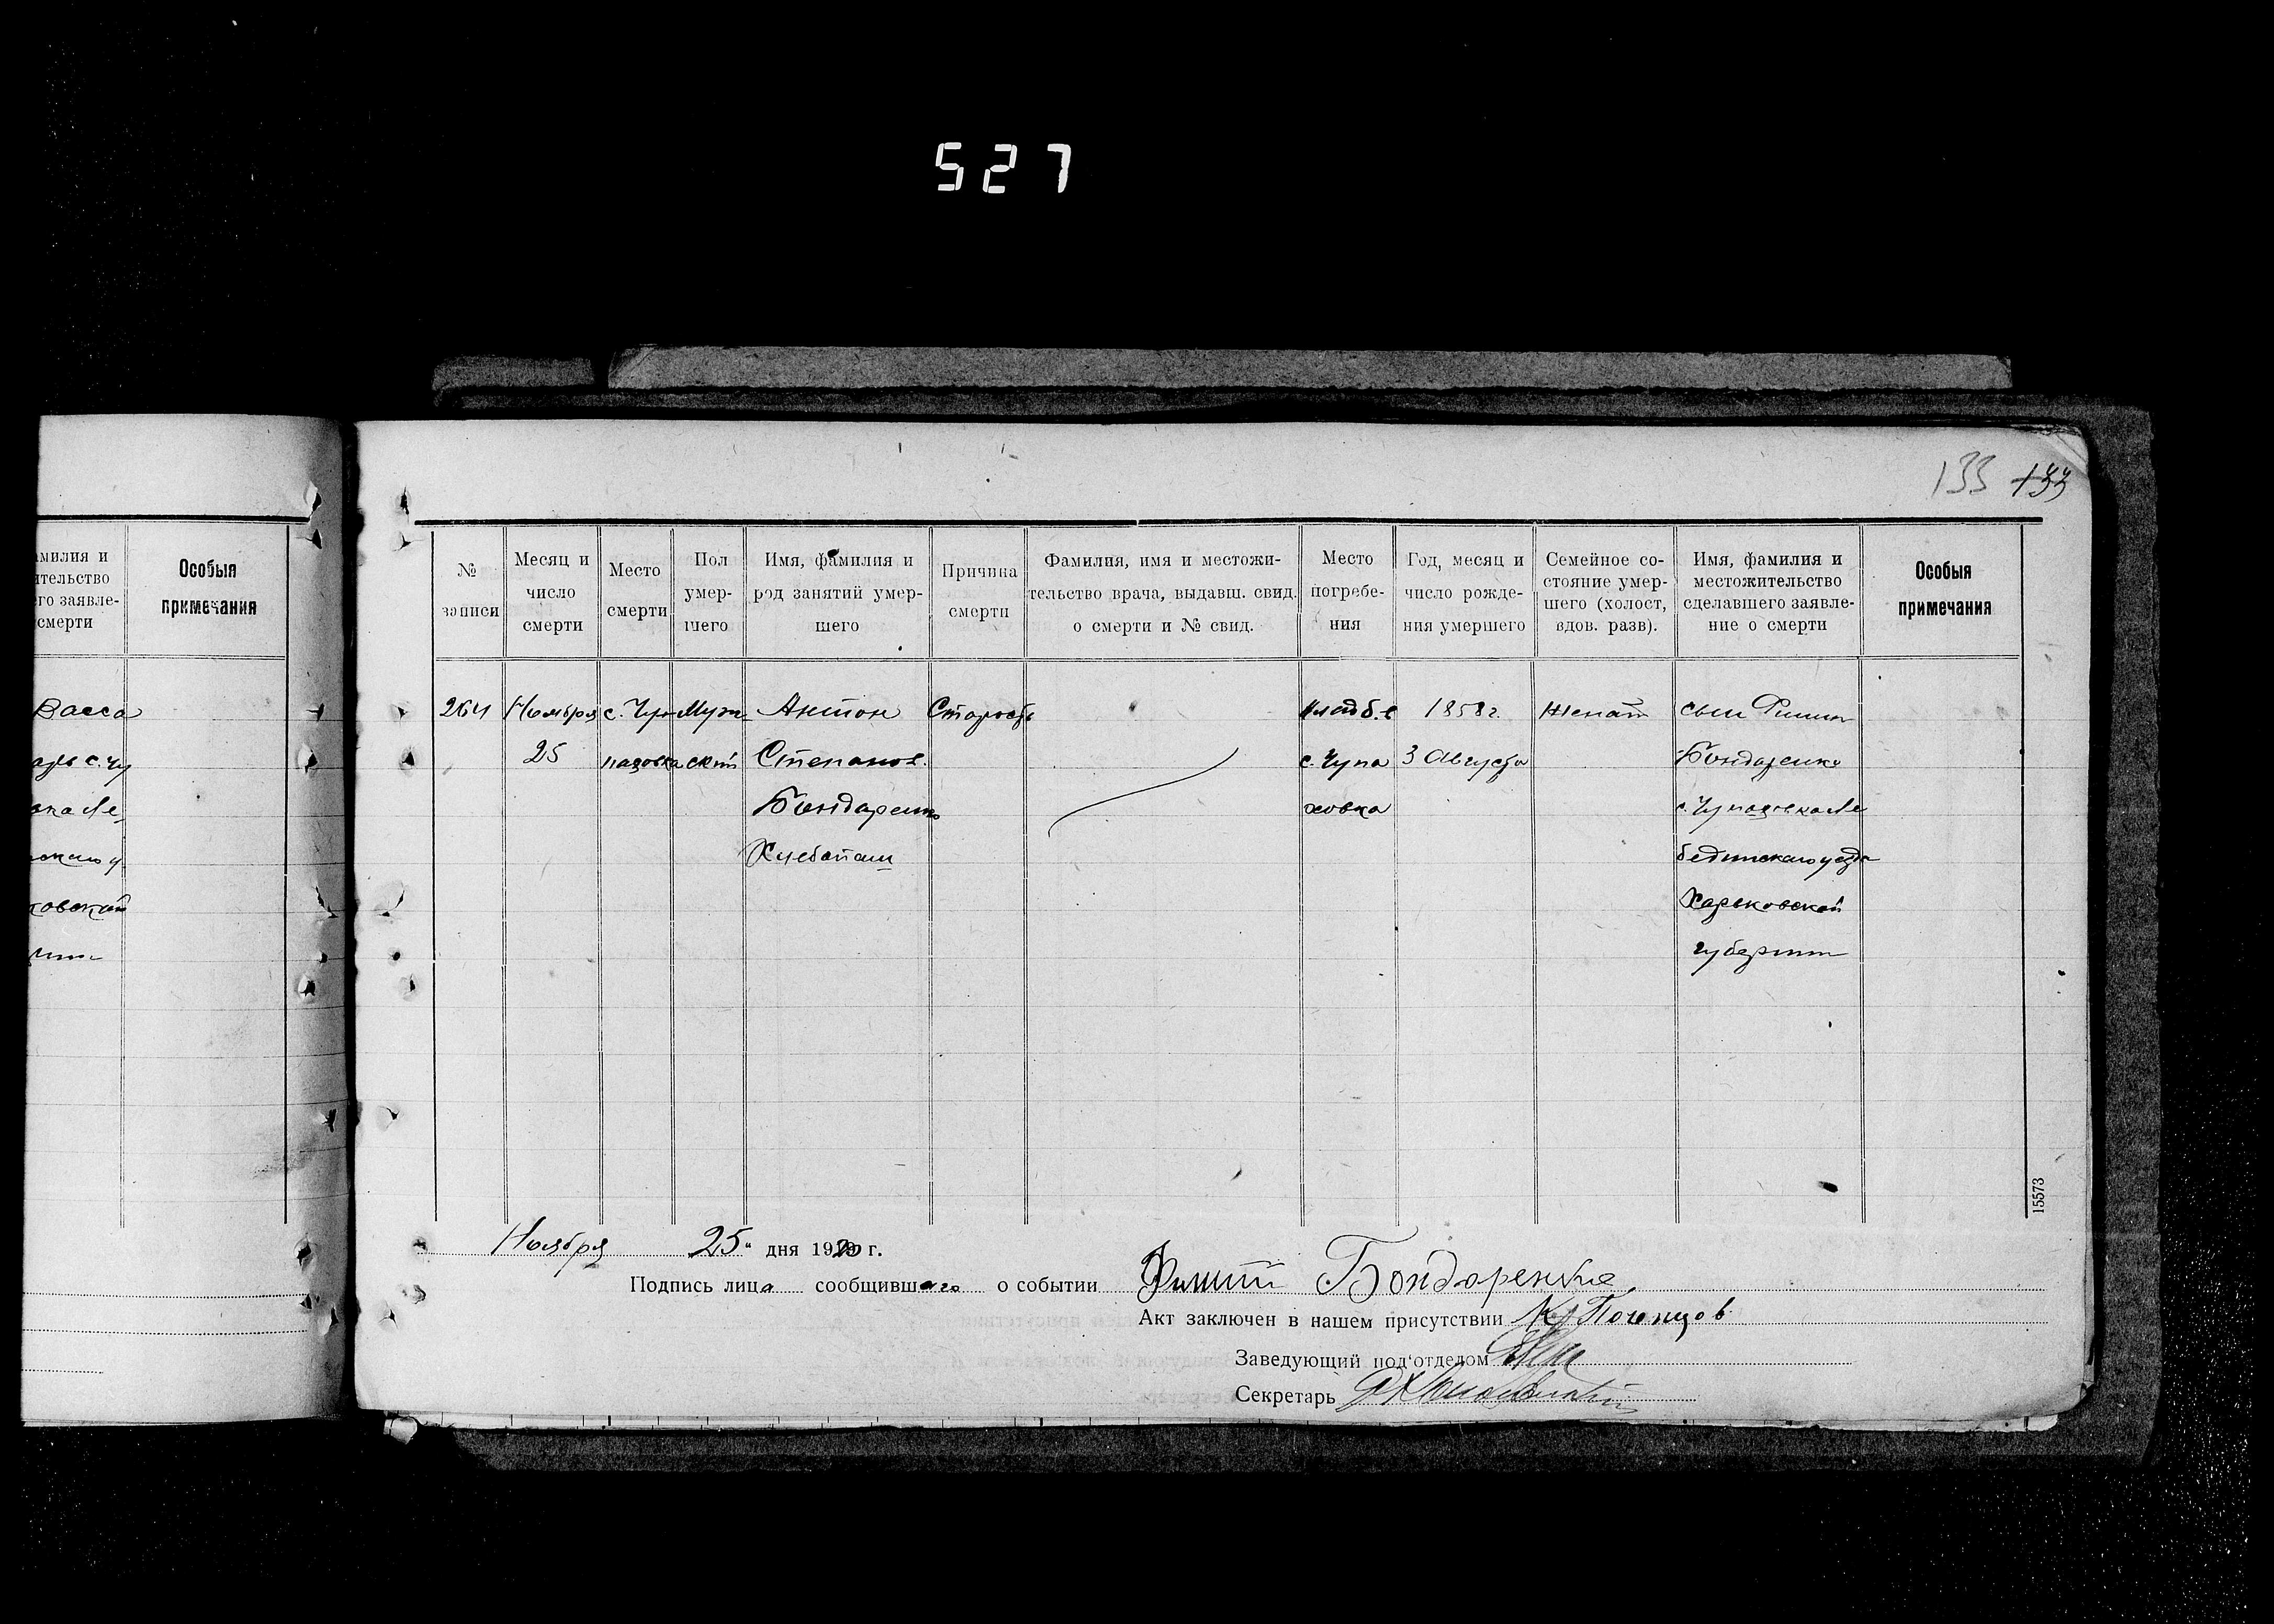 527
133 133
амилия и
ительство
его заявле-
смерти
Особыя
примечания
Васса
ковской
№
записи
Месяц и
число
смерти
Место
смерти
Пол
умер-
шего
Имя, фамилия и
род занятий умер-
шего
Причина
смерти
Фамилия, имя и местожи-
тельство врача, выдавш. свид.
о смерти и № свид.
Место
погребе-
ния
Год, месяц и
число рожде-
ния умершего
Семейное со-
стояние умер-
шего (холост,
вдов. разв).
Имя, фамилия и
местожительство
сделавшего заявле-
ние о смерти
Особыя
примечания
264
Ноября
25
с. Чу-
паховка
Муж-
ской
Антон
Степанов.
Бондаренко
Хлебопаш
Старость
кладб. в
с. Чупа
ховка
1858 г.
3 Августа
Женат
сын
Бондаренко
с. Чупаховка Ле
бединского уезда
Харьковской
губернии
15573
Ноября 25 " дня 1920 г.
Подпись лица сообщившаго о событии Бондаренко
Акт заключен в нашем присутствии
Заведующий под'отделом
Секретарь